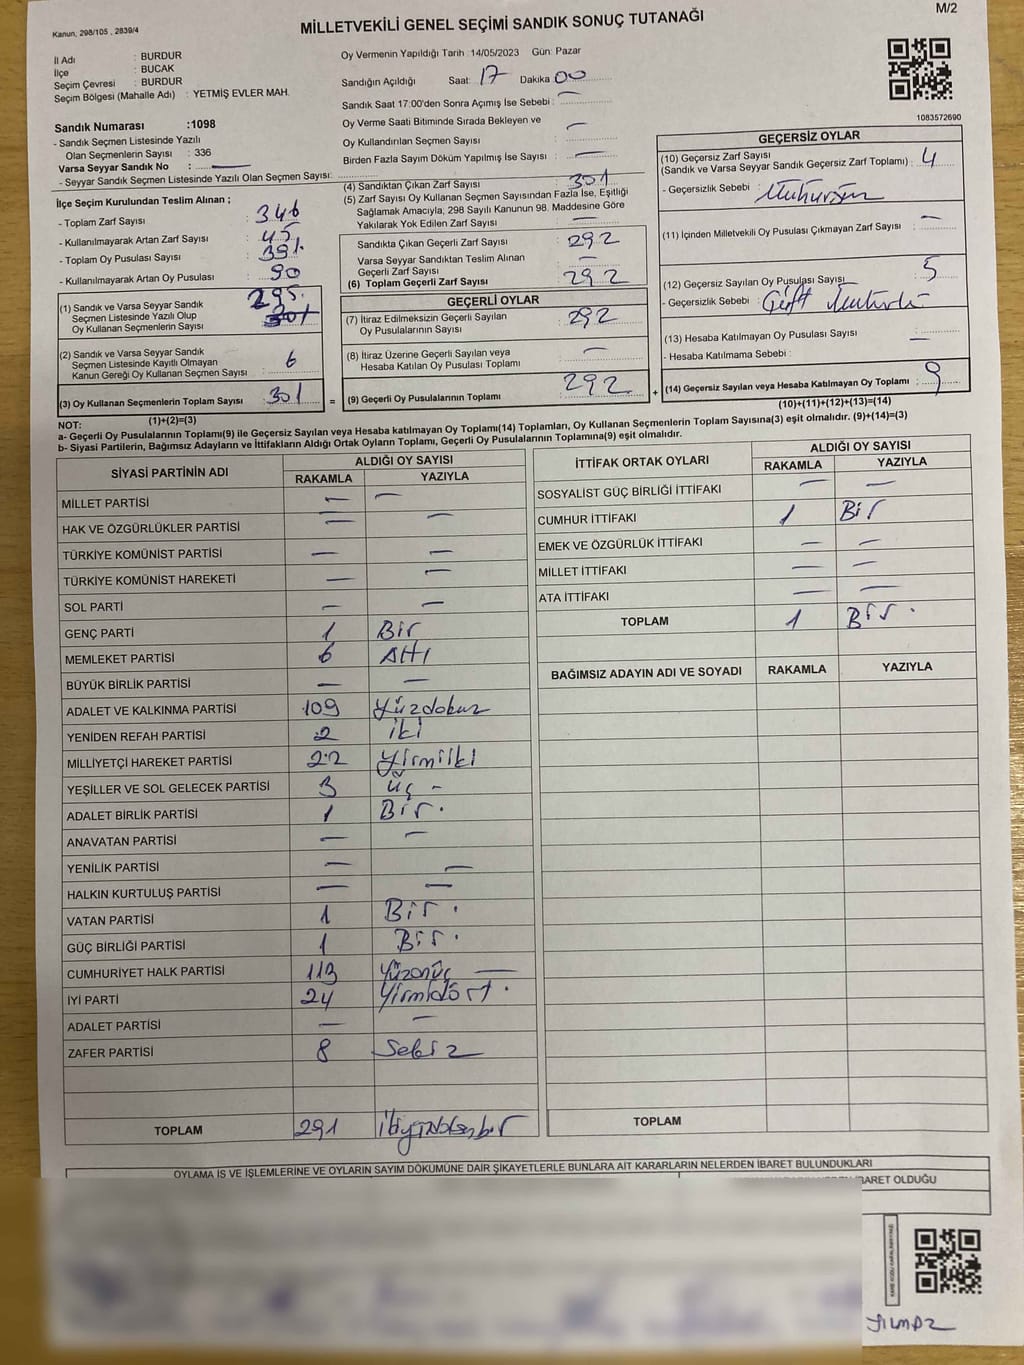 M/2
Kanun, 298/105 , 2839/4
MİLLETVEKİLİ GENEL SEÇİMİ SANDIK SONUÇ TUTANAĞI
İl Adı : BURDUR
İlçe : BUCAK
Seçim Çevresi : BURDUR
Seçim Bölgesi (Mahalle Adı) : YETMİŞ EVLER MAH.
Sandık Numarası :1098
- Sandık Seçmen Listesinde Yazılı
Olan Seçmenlerin Sayısı : 336
Varsa Seyyar Sandık No : —
- Seyyar Sandık Seçmen Listesinde Yazılı Olan Seçmen Sayısı:
Oy Vermenin Yapıldığı Tarih :14/05/2023 Gün: Pazar
Sandığın Açıldığı Saat: 17 Dakika 00
Sandık Saat 17:00'den Sonra Açımış İse Sebebi : —
Oy Verme Saati Bitiminde Sırada Bekleyen ve
Oy Kullandırılan Seçmen Sayısı : —
Birden Fazla Sayım Döküm Yapılmış İse Sayısı : —
1083572690
İlçe Seçim Kurulundan Teslim Alınan ;
- Toplam Zarf Sayısı : 346
- Kullanılmayarak Artan Zarf Sayısı : 45
- Toplam Oy Pusulası Sayısı : 391
- Kullanılmayarak Artan Oy Pusulası : 90
(1) Sandık ve Varsa Seyyar Sandık
Seçmen Listesinde Yazılı Olup
Oy Kullanan Seçmenlerin Sayısı : 295
(2) Sandık ve Varsa Seyyar Sandık
Seçmen Listesinde Kayıtlı Olmayan
Kanun Gereği Oy Kullanan Seçmen Sayısı : 6
(3) Oy Kullanan Seçmenlerin Toplam Sayısı : 301
(1)+(2)=(3)
(4) Sandıktan Çıkan Zarf Sayısı : 301
(5) Zarf Sayısı Oy Kullanan Seçmen Sayısından Fazla İse, Eşitliği
Sağlamak Amacıyla; 298 Sayılı Kanunun 98. Maddesine Göre
Yakılarak Yok Edilen Zarf Sayısı : —
Sandıkta Çıkan Geçerli Zarf Sayısı : 292
Varsa Seyyar Sandıktan Teslim Alınan
Geçerli Zarf Sayısı : —
(6) Toplam Geçerli Zarf Sayısı : 292
GEÇERLİ OYLAR
(7) İtiraz Edilmeksizin Geçerli Sayılan
Oy Pusulalarının Sayısı : 292
(8) İtiraz Üzerine Geçerli Sayılan veya
Hesaba Katılan Oy Pusulası Toplamı : —
(9) Geçerli Oy Pusulalarının Toplamı : 292
GEÇERSİZ OYLAR
(10) Geçersiz Zarf Sayısı
(Sandık ve Varsa Seyyar Sandık Geçersiz Zarf Toplamı) : 4
- Geçersizlik Sebebi : Mühürsüz
(11) İçinden Milletvekili Oy Pusulası Çıkmayan Zarf Sayısı : —
(12) Geçersiz Sayılan Oy Pusulası Sayısı : 5
- Geçersizlik Sebebi : Çift
(13) Hesaba Katılmayan Oy Pusulası Sayısı : —
- Hesaba Katılmama Sebebi :
(14) Geçersiz Sayılan veya Hesaba Katılmayan Oy Toplamı : 9
(10)+(11)+(12)+(13)=(14)
NOT:
a- Geçerli Oy Pusulalarının Toplamı(9) ile Geçersiz Sayılan veya Hesaba katılmayan Oy Toplamı(14) Toplamları, Oy Kullanan Seçmenlerin Toplam Sayısına(3) eşit olmalıdır. (9)+(14)=(3)
b- Siyasi Partilerin, Bağımsız Adayların ve İttifakların Aldığı Ortak Oyların Toplamı, Geçerli Oy Pusulalarının Toplamına(9) eşit olmalıdır.
SİYASİ PARTİNİN ADI ALDIĞI OY SAYISI
RAKAMLA YAZIYLA
MİLLET PARTİSİ — —
HAK VE ÖZGÜRLÜKLER PARTİSİ — —
TÜRKİYE KOMÜNİST PARTİSİ — —
TÜRKİYE KOMÜNİST HAREKETİ — —
SOL PARTİ — —
GENÇ PARTİ 1 Bir
MEMLEKET PARTİSİ 6 Altı
BÜYÜK BİRLİK PARTİSİ — —
ADALET VE KALKINMA PARTİSİ 109 Yüzdokuz
YENİDEN REFAH PARTİSİ 2 iki
MİLLİYETÇİ HAREKET PARTİSİ 22 Yirmiiki
YEŞİLLER VE SOL GELECEK PARTİSİ 3 üç -
ADALET BİRLİK PARTİSİ 1 Bir.
ANAVATAN PARTİSİ — —
YENİLİK PARTİSİ — —
HALKIN KURTULUŞ PARTİSİ — —
VATAN PARTİSİ 1 Bir.
GÜÇ BİRLİĞİ PARTİSİ 1 Bir.
CUMHURİYET HALK PARTİSİ 113 Yüzonüç —
İYİ PARTİ 24 Yirmidört.
ADALET PARTİSİ — —
ZAFER PARTİSİ 8 Sekiz
TOPLAM 291 ikiyüzdoksanbir
İTTİFAK ORTAK OYLARI ALDIĞI OY SAYISI
RAKAMLA YAZIYLA
SOSYALİST GÜÇ BİRLİĞİ İTTİFAKI — —
CUMHUR İTTİFAKI 1 Bir
EMEK VE ÖZGÜRLÜK İTTİFAKI — —
MİLLET İTTİFAKI — —
ATA İTTİFAKI — —
TOPLAM 1 Bir.
BAĞIMSIZ ADAYIN ADI VE SOYADI RAKAMLA YAZIYLA
TOPLAM
OYLAMA İŞ VE İŞLEMLERİNE VE OYLARIN SAYIM DÖKÜMÜNE DAİR ŞİKAYETLERLE BUNLARA AİT KARARLARIN NELERDEN İBARET BULUNDUKLARI
BARET OLDUĞU
YILMAZ